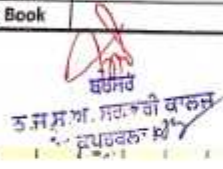 Book
ਬਰਸਰ
ਨ.ਜ.ਸ.ਅ. ਸਰਕਾਰੀ ਕਾਲਜ
ਕਪੂਰਥਲਾ